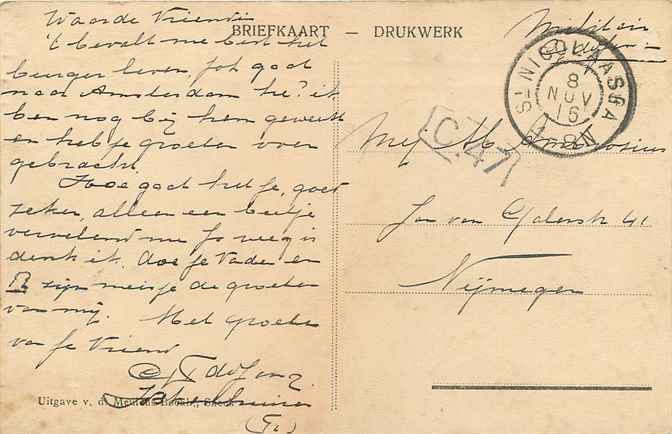 Waarde Vriendin
't bevalt me best het
burger leven, Joh. gaat
naar Amsterdam hè? ik
ben nog bij hem geweest
en heb je groeten over
gebracht.
Hoe gaat het je, goed
zeker, alleen een beetje
vervelend nu Jo weg is
denk ik. doe je Vader en
zijn meisje de groeten
van mij. Met groeten
van je Vriend
de Jong
Uitgave v. d.
BRIEFKAART — DRUKWERK
Militair
ST NICOLAASGA
8
NOV
16
C.47
Mej M.
Jan van Galenstr 41
Nijmegen